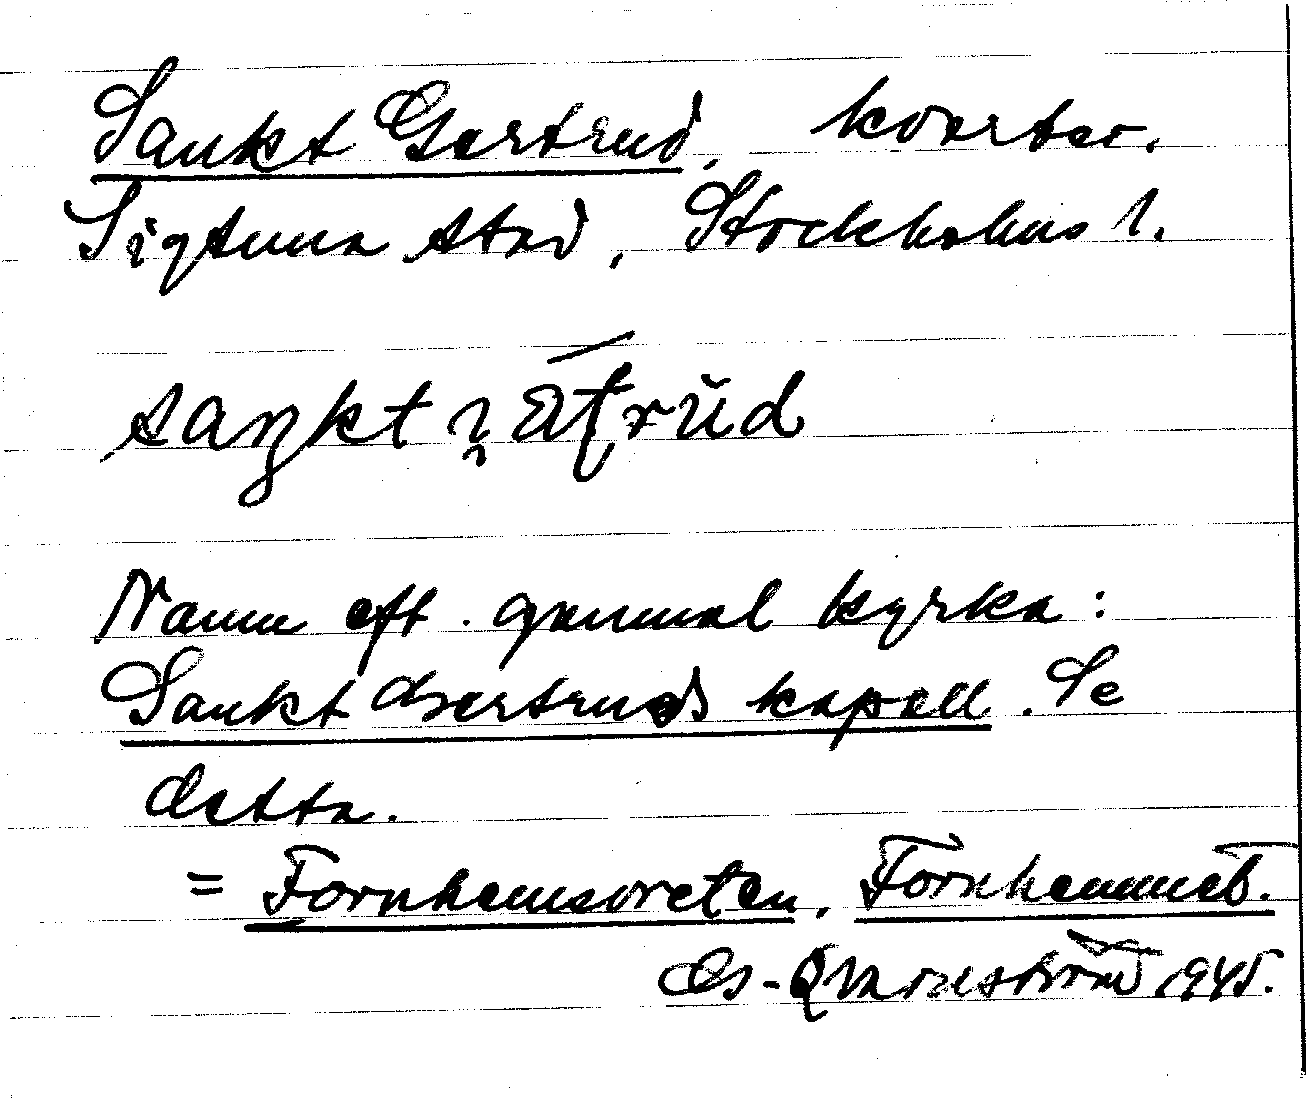 Sankt Gertrud, kvarter.
Sigtuna stad, Stockholms l.
sankt
Namn eft. gammal kyrka:
Sankt Gertruds kapell. Se
detta.
= Fornhemsvreten, Fornhemmet.
1945.